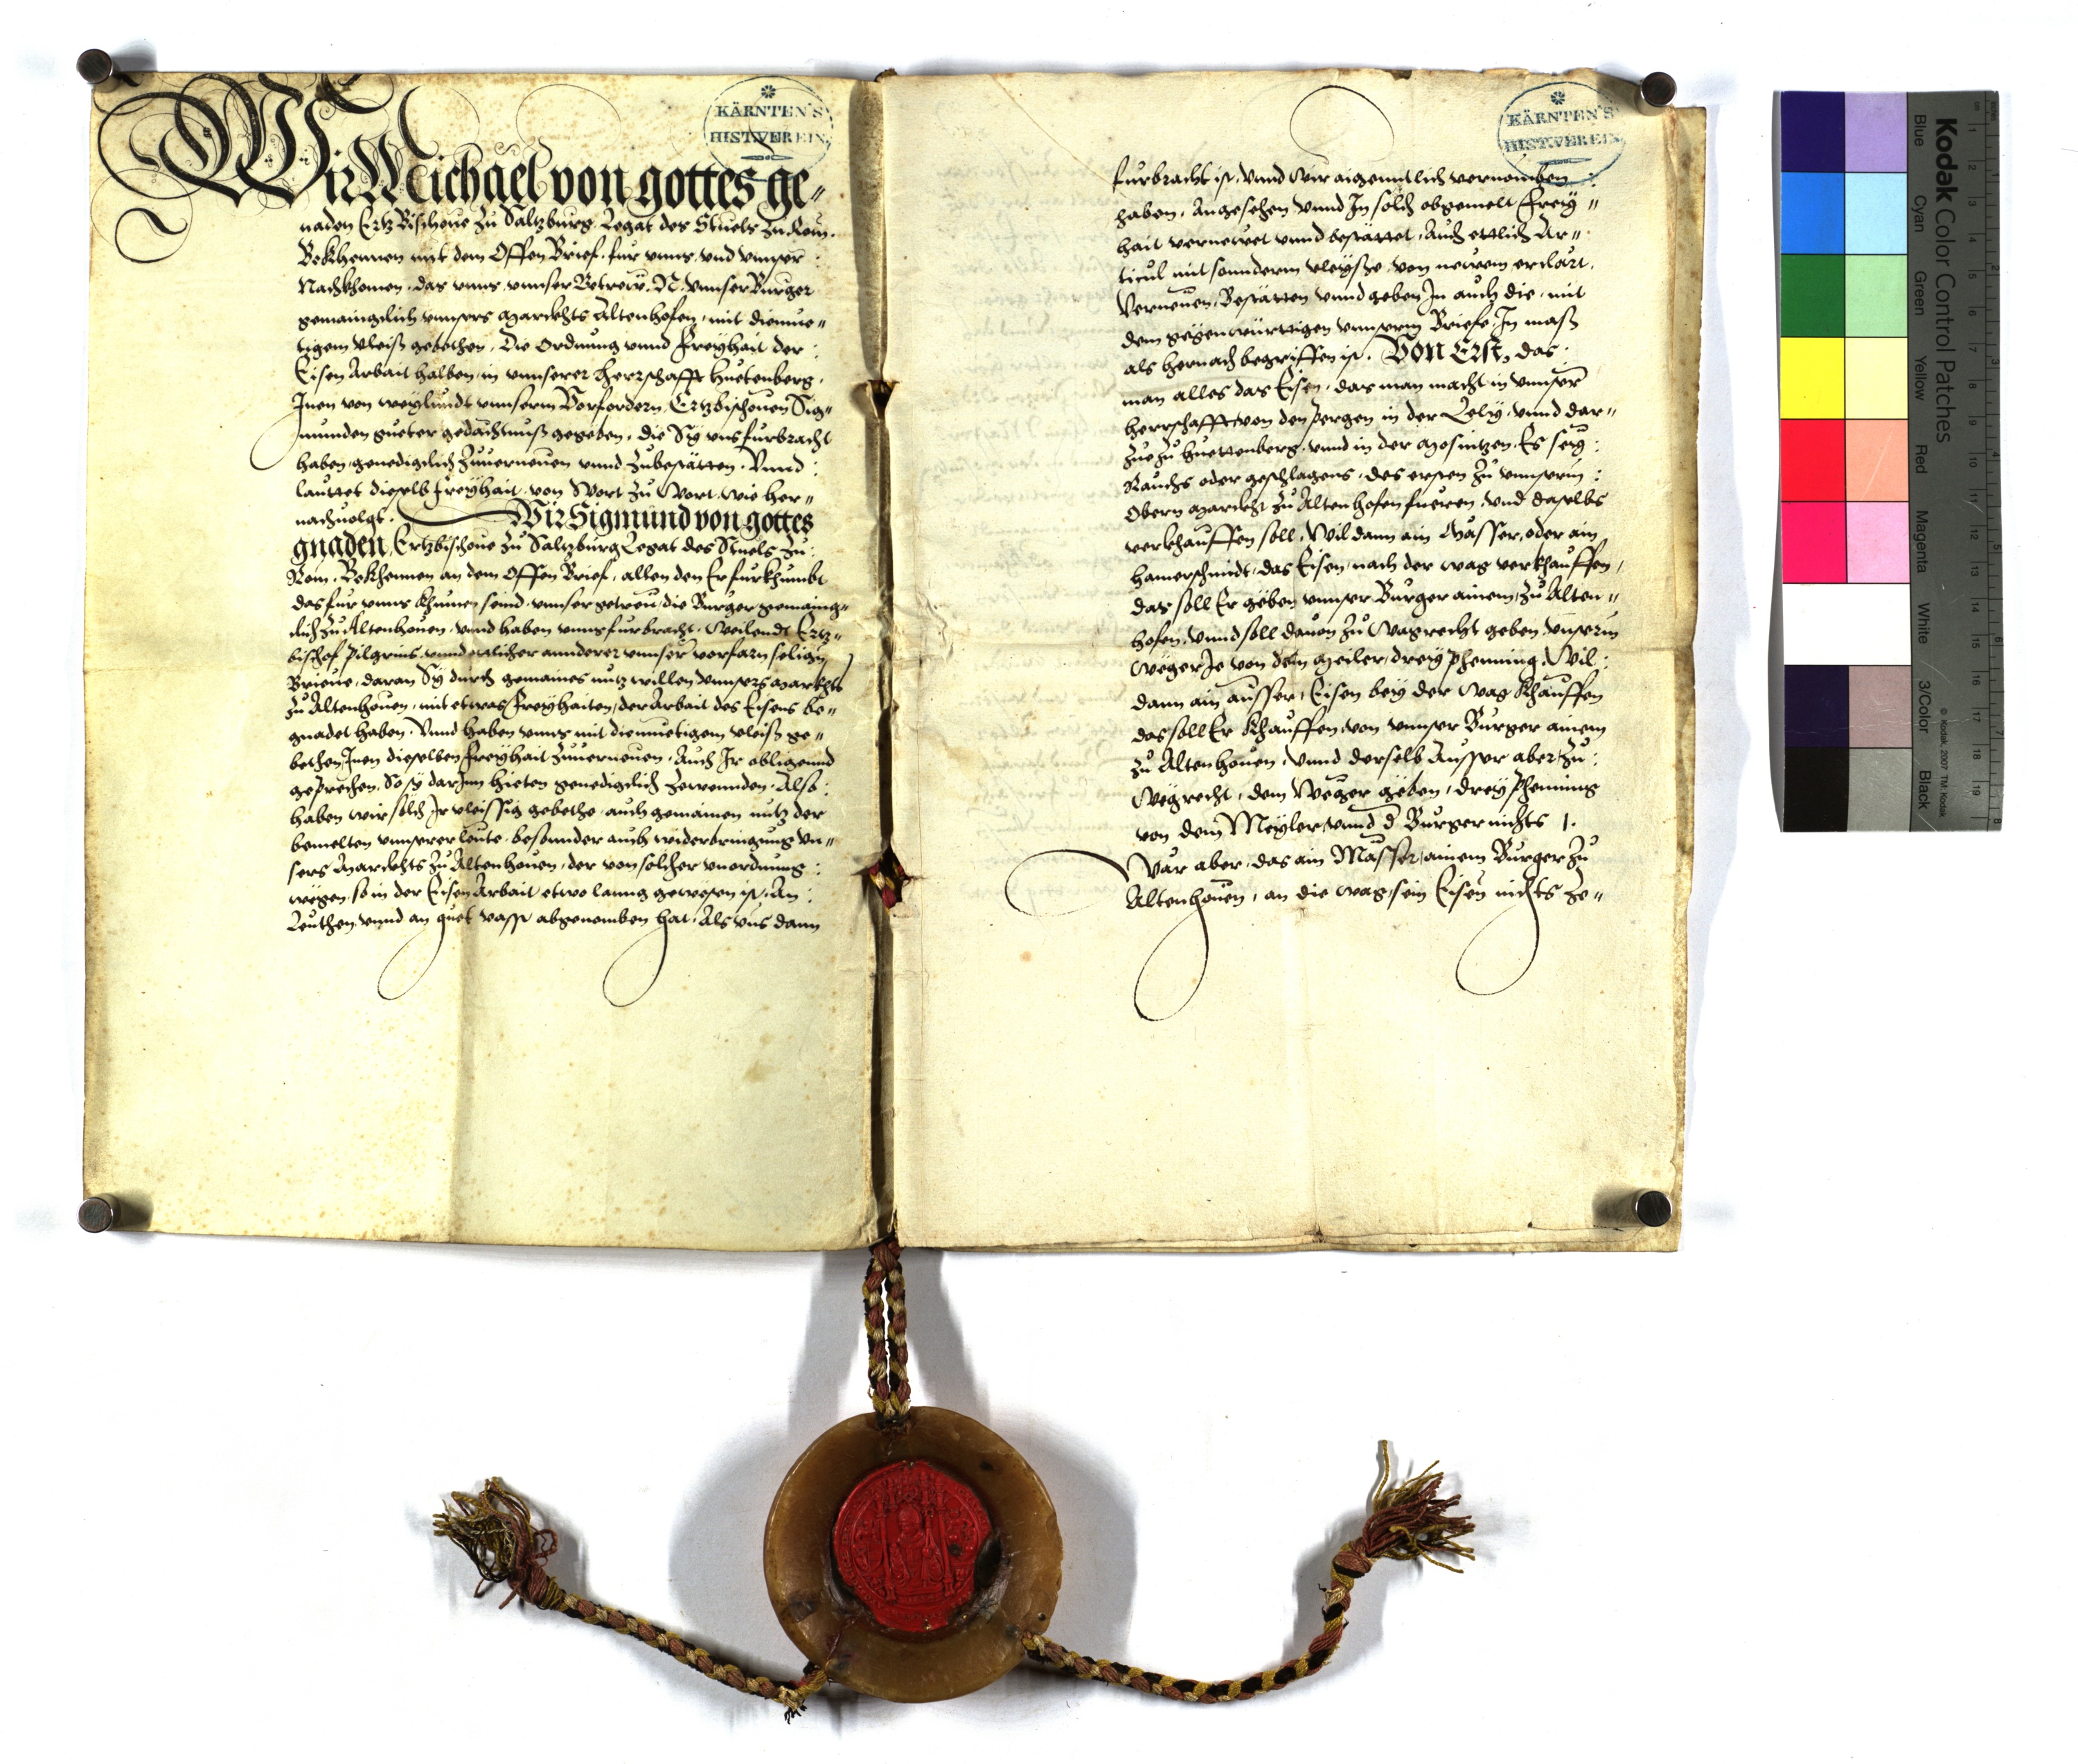 KÄRNTEN'S
HIST. VEREIN
Wir Michael von gottes ge-
naden Ertz Bischoue zu Saltzburg Legat des Stuels zu Rom.
Bekhennen mit dem Offen Brief, fur vnns vnd vnnser
Nachkhomen, das vnns vnnser Getrew, N. vnnser Burger
gemaingclich vnnsers Marckhts Altenhofen, mit diemue-
tigem vleiß gebethen, Die Ordnung vnnd Freyhait der
Eisen Arbait halben, in vnnserer Herrschafft Huetenberg,
Inen von weylundt vnnserm Vorfordern, Ertzbischouen Sig-
munden gueter gedächtnuß gegeben, die Sy vns furbracht
haben, genedigclich zuuerneuen vnnd zubestätten. Vnnd
lauttet dieselb freyhait von Wort zu Wort, wie her-
nachuolgt. Wir Sigmund von gottes
gnaden, Ertzbischoue zu Saltzburg Legat des Stuels zu
Rom. Bekhennen an dem Offen Brief, allen den Er furkhumbt
das fur vnns khumen seind, vnnser getreu, die Burger gemaing-
clich zu Altenhouen, vnnd haben vnns furbracht, Weilendt Ertz-
bischof Pilgrins, vnnd ettlicher annderer vnnser vorfarn seligen
Brieue, daran Sy durch gemaines nutz willen vnnsers Marckhts
zu Altenhouen, mit etwas Freyhaiten, der Arbait des Eisens be-
gnadet haben. Vnnd haben vnns mit diemuetigem vleiß ge-
bethen, Inen dieselben Freyhait zuuerneuen, Auch Ir obligennd
geprechen, So sy darInn hieten genedigclich zewennden. Also
haben wir solch Ir vleissig gebethe, auch gemainen nutz der
bemelten vnnserer leute, besonnder auch widerbringung vn-
sers Marckhts zu Altenhouen, der von solcher vnordnung
wegen, so in der Eisen Arbait etwo lanng gewesen ist, An
Leuthen, vnnd an guet vasst abgenomben hat, Als vns dann
KÄRNTEN'S
HIST. VEREIN
furbracht ist, vnnd Wir aigenntlich vernomben
haben, Angesehen vnnd In solch obgemelt Frey-
hait vernewet vnnd bestättet, Auch ettlich Ar-
ticul mit sonnderm vleysse von newem erclärt,
Verneuen, Bestätten vnnd geben In auch die, mit
dem gegenwürttigen vnnserm Briefe, In maß
als hernach begriffen ist. Von Erst, das
man alles das Eisen, das man macht in vnnser
Herrschafft von den pergen in der Lely, vnnd dar-
zue zu Huettenberg, vnnd in der Mosintzen, Es sey
Rauchs oder geschlagens, des ersten zu vnnserm
Obern Marckht zu Altenhofen fueren, vnd daselbs
verkhauffen soll. Wil dann ain Masser, oder ain
hamerschmidt, das Eisen, nach der wag verkhauffen,
das soll Er geben vnnser Burger ainem, zu Alten-
hofen, vnnd soll dauon zu Wagrecht geben, vnserm
Weger Ie von dem Meiler, drey phenning. Wil
dann ain ausser, Eisen bey der Wag khauffen
das soll Er khauffen, von vnnser Burger ainem
zu Altenhouen, vnnd derselb Ausser aber zu
Wegrecht, dem Weger geben, drey phenning
von dem Meyler, vnnd d Burger nichts.
Wär aber, das ain Masser, ainem Burger zu
Altenhouen, an die wag, sein Eisen nichts ze-
Kodak Color Control Patches
Blue
Cyan
Green
Yellow
Red
Magenta
White
3/Color
Black
© Kodak, 2007 TM: Kodak